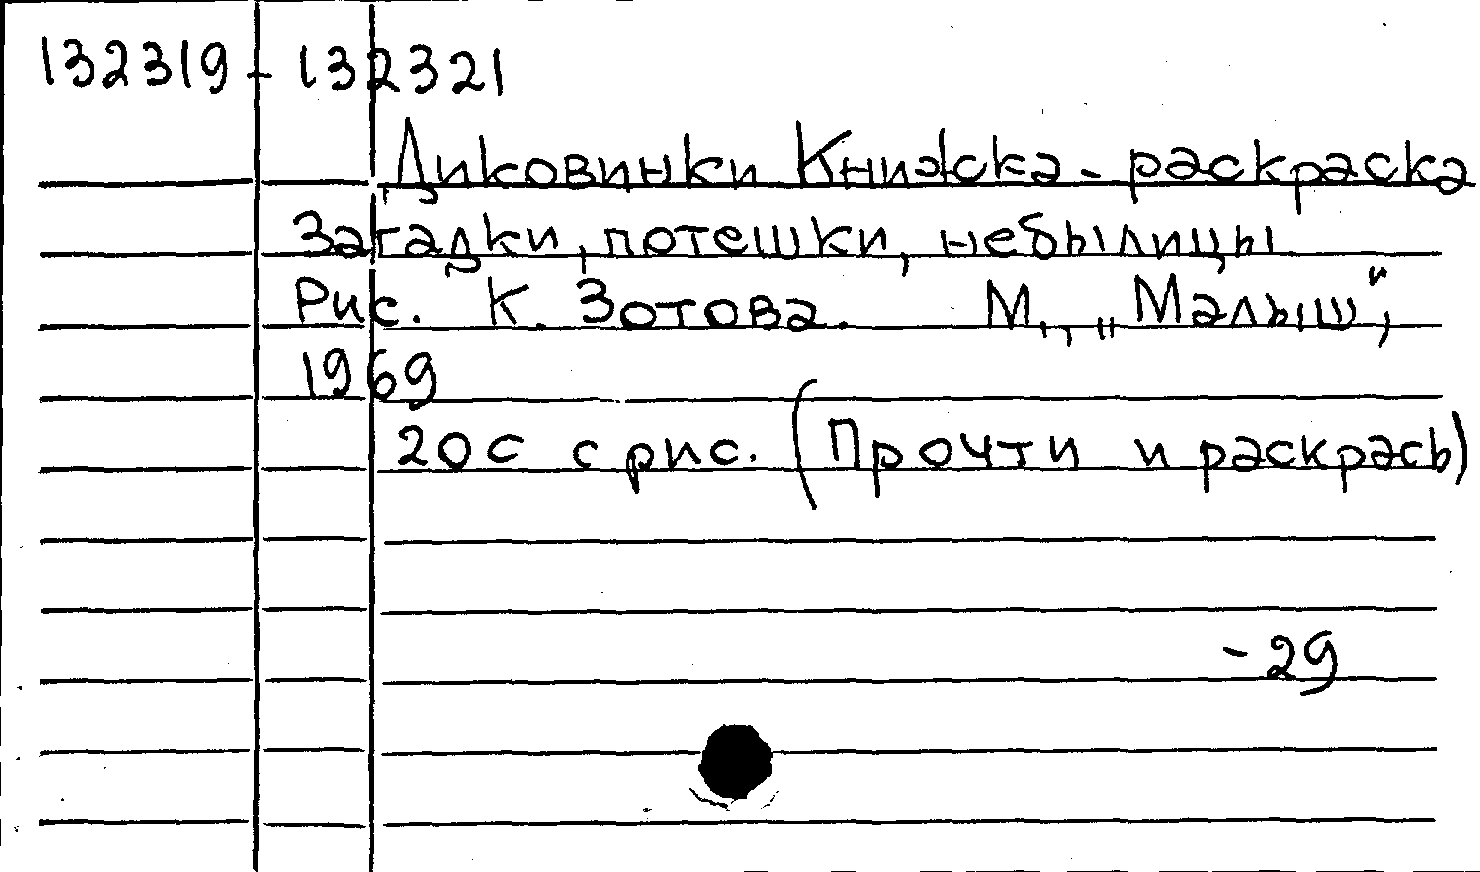 132319 - 132321
Диковинки Книжка - раскраска
Загадки, потешки, небылицы
Рис. К. Зотова. М., „Малыш",
1969
20с с рис. (Прочти и раскрась)
- 29